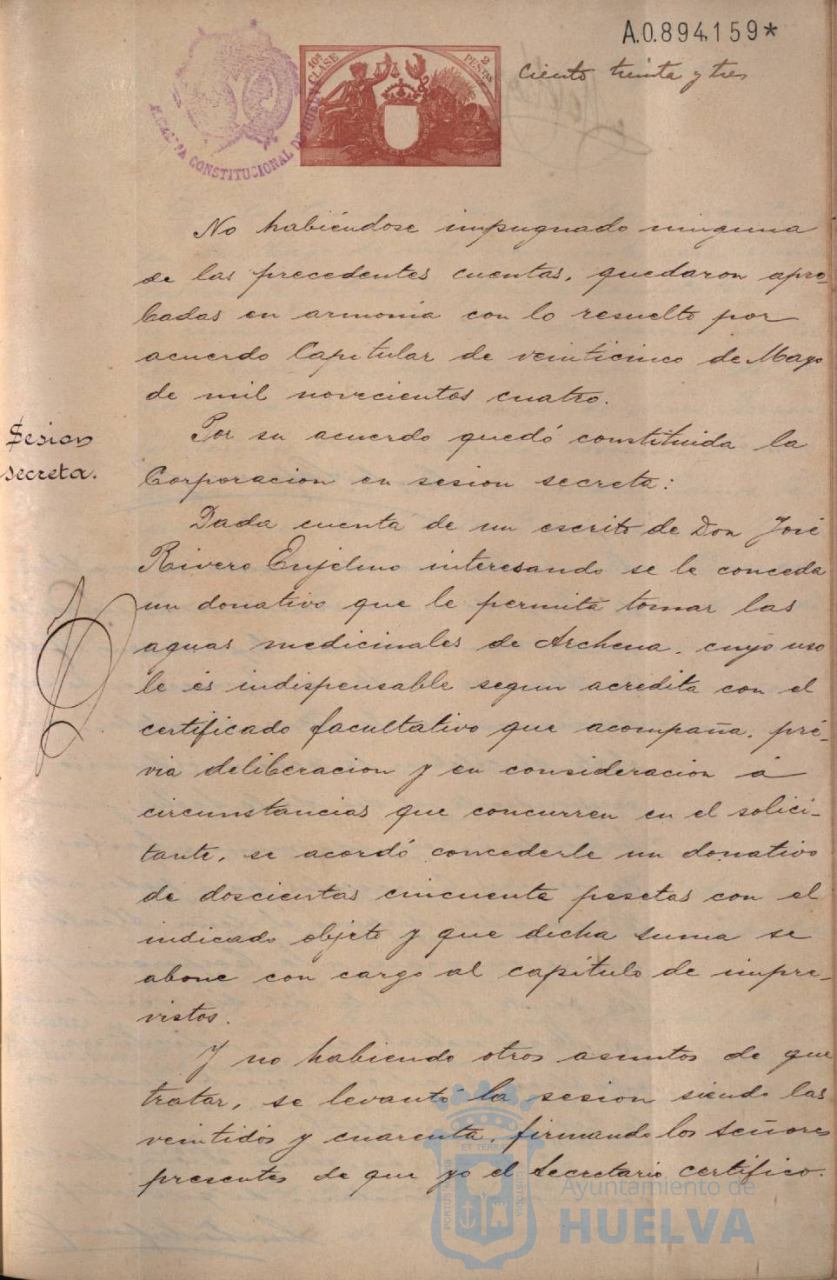 A.0.894,159*
10ª CLASE
2 PESETAS
ALCALDIA CONSTITUCIONAL DE HUELVA
Ciento treinta y tres
No habiéndose impugnado ninguna
de las precedentes cuentas, quedaron apro-
badas en armonia con lo resuelto por
acuerdo Capitular de veinticinco de Mayo
de mil novecientos cuatro.
Sesion
secreta.
Por su acuerdo quedó constituida la
Corporacion en sesion secreta:
Dada cuenta de un escrito de Don José
Rivero Enjelmo interesando se le conceda
un donativo que le permita tomar las
aguas medicinales de Archena, cuyo uso
le és indispensable segun acredita con el
certificado facultativo que acompaña, pré-
via deliberacion y en consideracion á
circunstancias que concurren en el solici-
tante, se acordó concederle un donativo
de doscientas cincuenta pesetas con el
indicado objeto y que dicha suma se
abone con cargo al capítulo de impre-
vistos.
Y no habiendo otros asuntos de que
tratar, se levantó la sesion siendo las
veintidos y cuarenta, firmando los Señores
presentes de que yo el Secretario certifico.
Ayuntamiento de
HUELVA